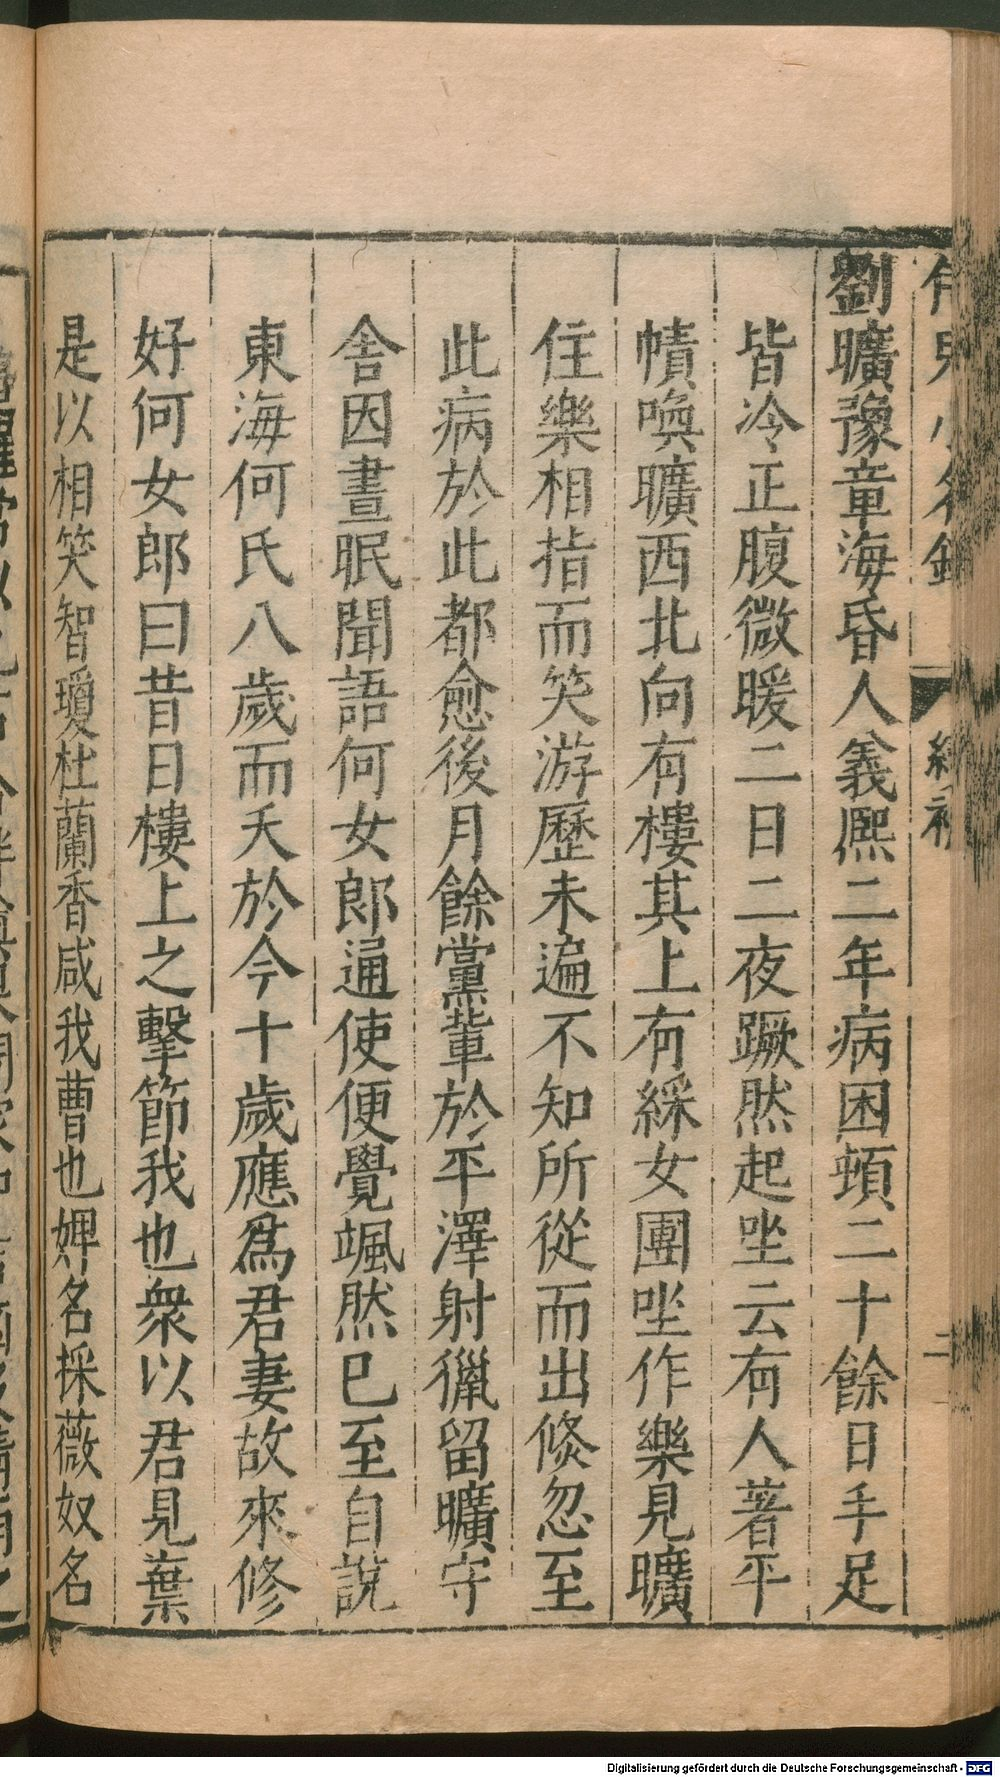 劉曠豫章海昏人義熙二年病困頓二十餘日手足
皆冷正腹微暖二日二夜蹶然起坐云有人著平
幘喚曠西北向有樓其上有綵女團坐作樂見曠
住樂相指而笑游歷未遍不知所從而出倐忽至
此病於此都愈後月餘黨軰於平澤射獵留曠守
舎因晝眠聞語何女郎通使便覺颯然已至自說
東海何氏八歲而夭於今十歲應爲君妻故來修
好何女郎曰昔日樓上之擊節我也衆以君見葉
是以相笑智瓊杜蘭香咸我曹也婢名採薇奴名
Digitalisierung gefördert durch die Deutsche Forschungsgemeinschaft - DFG